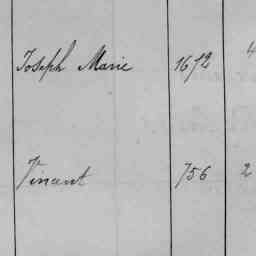 Joseph Marie 1672 4
Vincent 756 2